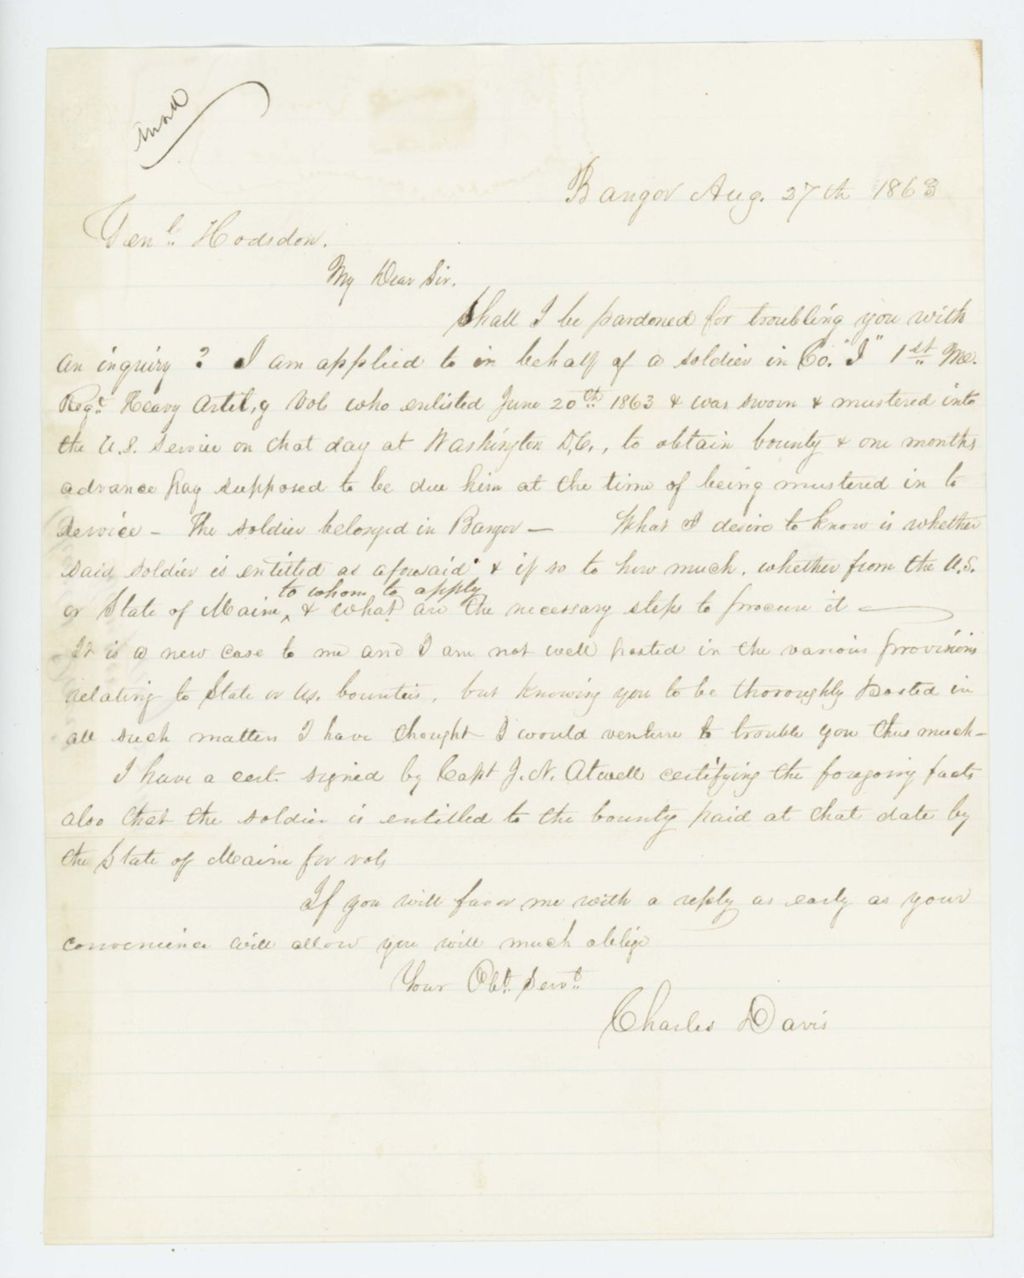 Bangor Aug. 27th 1863
Genl. Hodsdon.
My Dear Sir.
Shall I be pardoned for troubling you with
an inquiry? I am applied to in behalf of a soldier in Co. "I" 1st Me.
Regt Heavy Artil,y Vols who enlisted June 20th 1863 & was sworn & mustered into
the U.S. Service on that day at Washington D,C,, to obtain bounty & one months
advance pay supposed to be due him at the time of being mustered in to
service - The soldier belonged in Bangor - What I desire to know is whether
said soldier is entitled as aforesaid & if so to how much, whether from the U.S.
to whom to apply
or State of Maine, & what are the necessary steps to procure it
It is a new case to me and I am not well posted in the various provisions
relating to State or U.S. bounties, but knowing you to be thoroughly posted in
all such matters I have thought I would venture to trouble you thus much-
I have a cert- signed by Capt J. N. Atwell certifying the foregoing facts
also that the soldier is entitled to the bounty paid at that date by
the State of Maine for vols
If you will favor me with a reply as early as your
convenience will allow you will much oblige
Your Obt. Servt.
Charles Davis